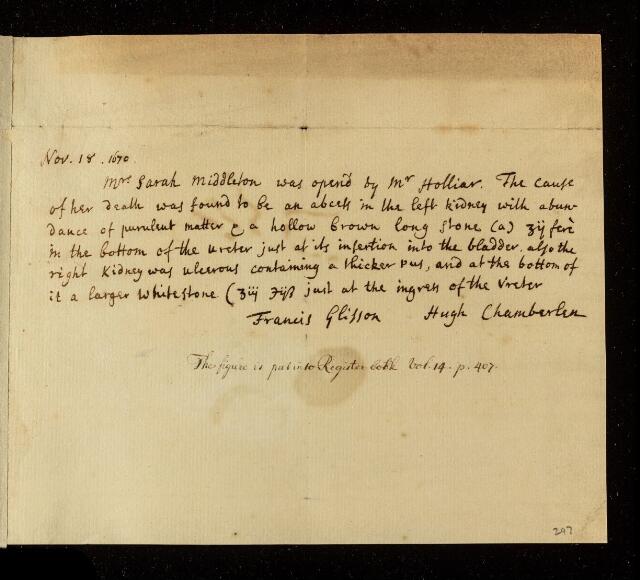 Nov. 18. 1670
Mrs Sarah Middleton was open'd by Mr Holliar. The cause
of her death was found to be an abcess in the left kidney with abun-
dance of purulent matter & a hollow brown long stone (a) ʒij ferè
in the bottom of the ureter just at its insertion into the bladder. also the
right Kidney was ulcerous containing a thicker pus, and at the bottom of
it a larger white stone (ʒiij just at the ingress of the Ureter
Francis Glisson Hugh Chamberlen
The figure is put into Register book Vol. 14. p. 407.
297